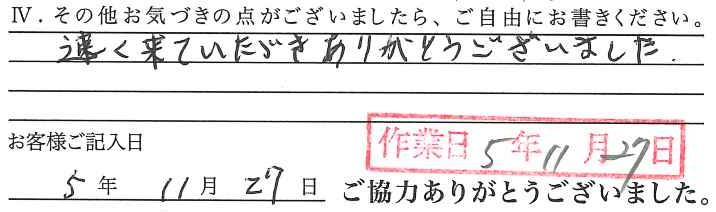 Ⅳ．その他お気づきの点がございましたら、ご自由にお書きください。
速く来ていただきありがとうございました.
お客様ご記入日
作業日 5年11月27日
5年 11月 27日 ご協力ありがとうございました。